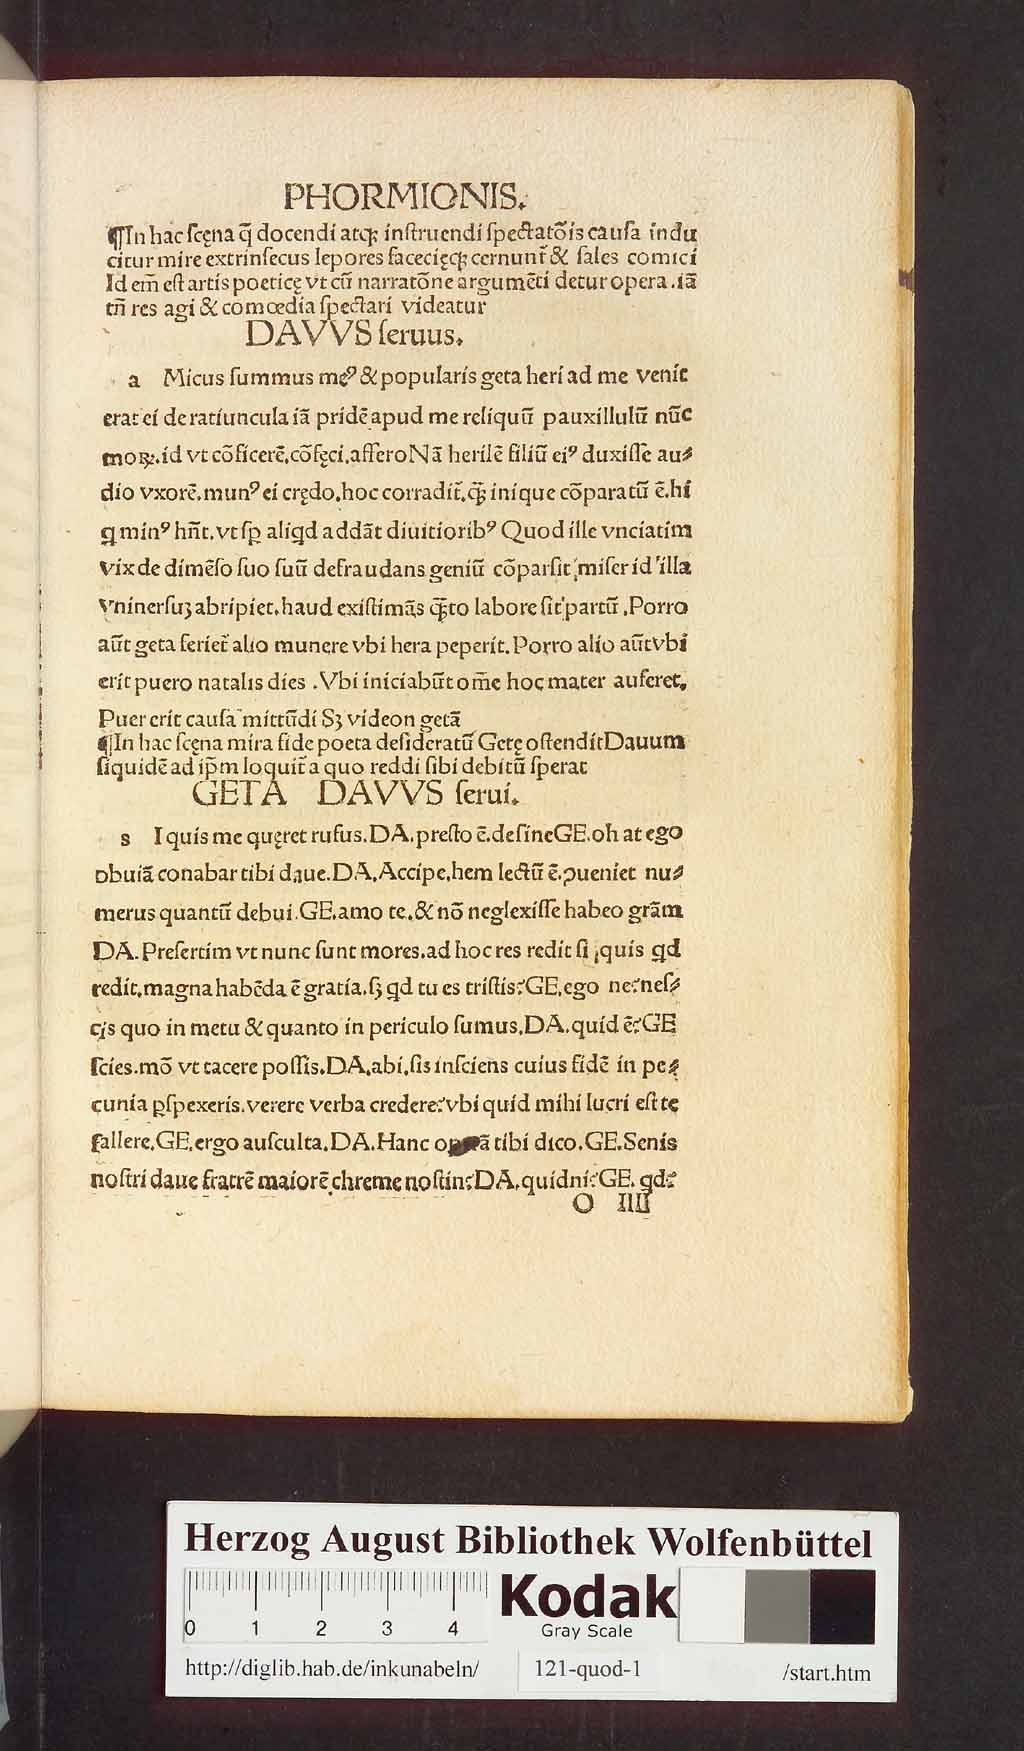 PHORMIONIS.
¶In hac ſcęna q̃ docendi atqꝫ inſtruendi ſpectatõis cauſa indu
citur mire extrinſecus lepores facecięqꝫ cernunt̃ & ſales comici
Id em̃ eſt artis poeticę vt cũ narratõne argumẽti detur opera. iã
tñ res agi & comœdia ſpectari videatur
DAVVS ſeruus.
a Micus ſummus meꝰ & popularis geta heri ad me venit
erat ei de ratiuncula iã pridẽ apud me reliquũ pauxillulũ nũc
moꝝ. id vt cõficerẽ. cõfęci. affero Nã herilẽ filiũ eiꝰ duxiſſe au⸗
dio vxorẽ. munꝰ ei crędo. hoc corradit̃. q̃ꝫ inique cõparatũ ẽ. hi
q minꝰ hñt. vt ſꝑ aliqd addãt diuitioribꝰ Quod ille vnciatim
vix de dimẽſo ſuo ſuũ defraudans geniũ cõparſit miſer id illa
vninerſuꝫ abripiet. haud exiſtimãs q̃ꝫto labore ſit partũ. Porro
aũt geta feriet̃ alio munere vbi hera peperit. Porro alio aũt vbi
erit puero natalis dies . Vbi iniciabũt om̃e hoc mater auferet.
Puer erit cauſa mittũdi Sꝫ videon getã
¶In hac ſcęna mira fide poeta deſideratũ Getę oſtendit Dauum
ſiquidẽ ad ip̃m loquit̃ a quo reddi ſibi debitũ ſperat
GETA DAVVS ſerui.
s I quis me quęret rufus. DA. preſto ẽ. deſine GE. oh at ego
obuiã conabar tibi daue. DA. Accipe. hem lectũ ẽ. ꝯueniet nu⸗
merus quantũ debui. GE. amo te. & nõ neglexiſſe habeo grãm
DA. Preſertim vt nunc ſunt mores. ad hoc res redit ſi quis qd
redit. magna habẽda ẽ gratia. ſꝫ qd tu es triſtis? GE. ego ne? neſ⸗
cis quo in metu & quanto in periculo ſumus. DA. quid ẽ? GE
ſcies. mõ vt tacere poſſis. DA. abi. ſis inſciens cuius fidẽ in pe⸗
cunia ꝑſpexeris. verere verba credere? vbi quid mihi lucri eſt te
fallere. GE. ergo auſculta. DA. Hanc tibi dico. GE. Senis
noſtri daue fratrẽ maiorẽ chreme noſtin? DA. quidni? GE. qd?
O IIII
Herzog August Bibliothek Wolfenbüttel
0 1 2 3 4
Kodak
Gray Scale
http://diglib.hab.de/inkunabeln/ 121-quod-1 /start.htm